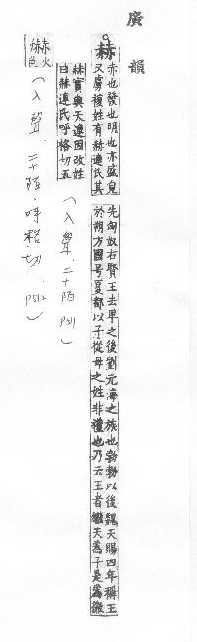 廣韻
赫
赤也發也明也亦盛皃
又虜複姓有赫連氏其
先匈奴右賢王去卑之後劉元海之族也勃勃以後魏天賜四年稱王
於朔方國号夏都以子從母之姓非禮也乃云王者繼天為子是為徽
赫實與天連因改姓
曰赫連氏呼格切五
(入聲.二十陌 P511)
爀火色
(入聲.二十陌.呼格切.P512)